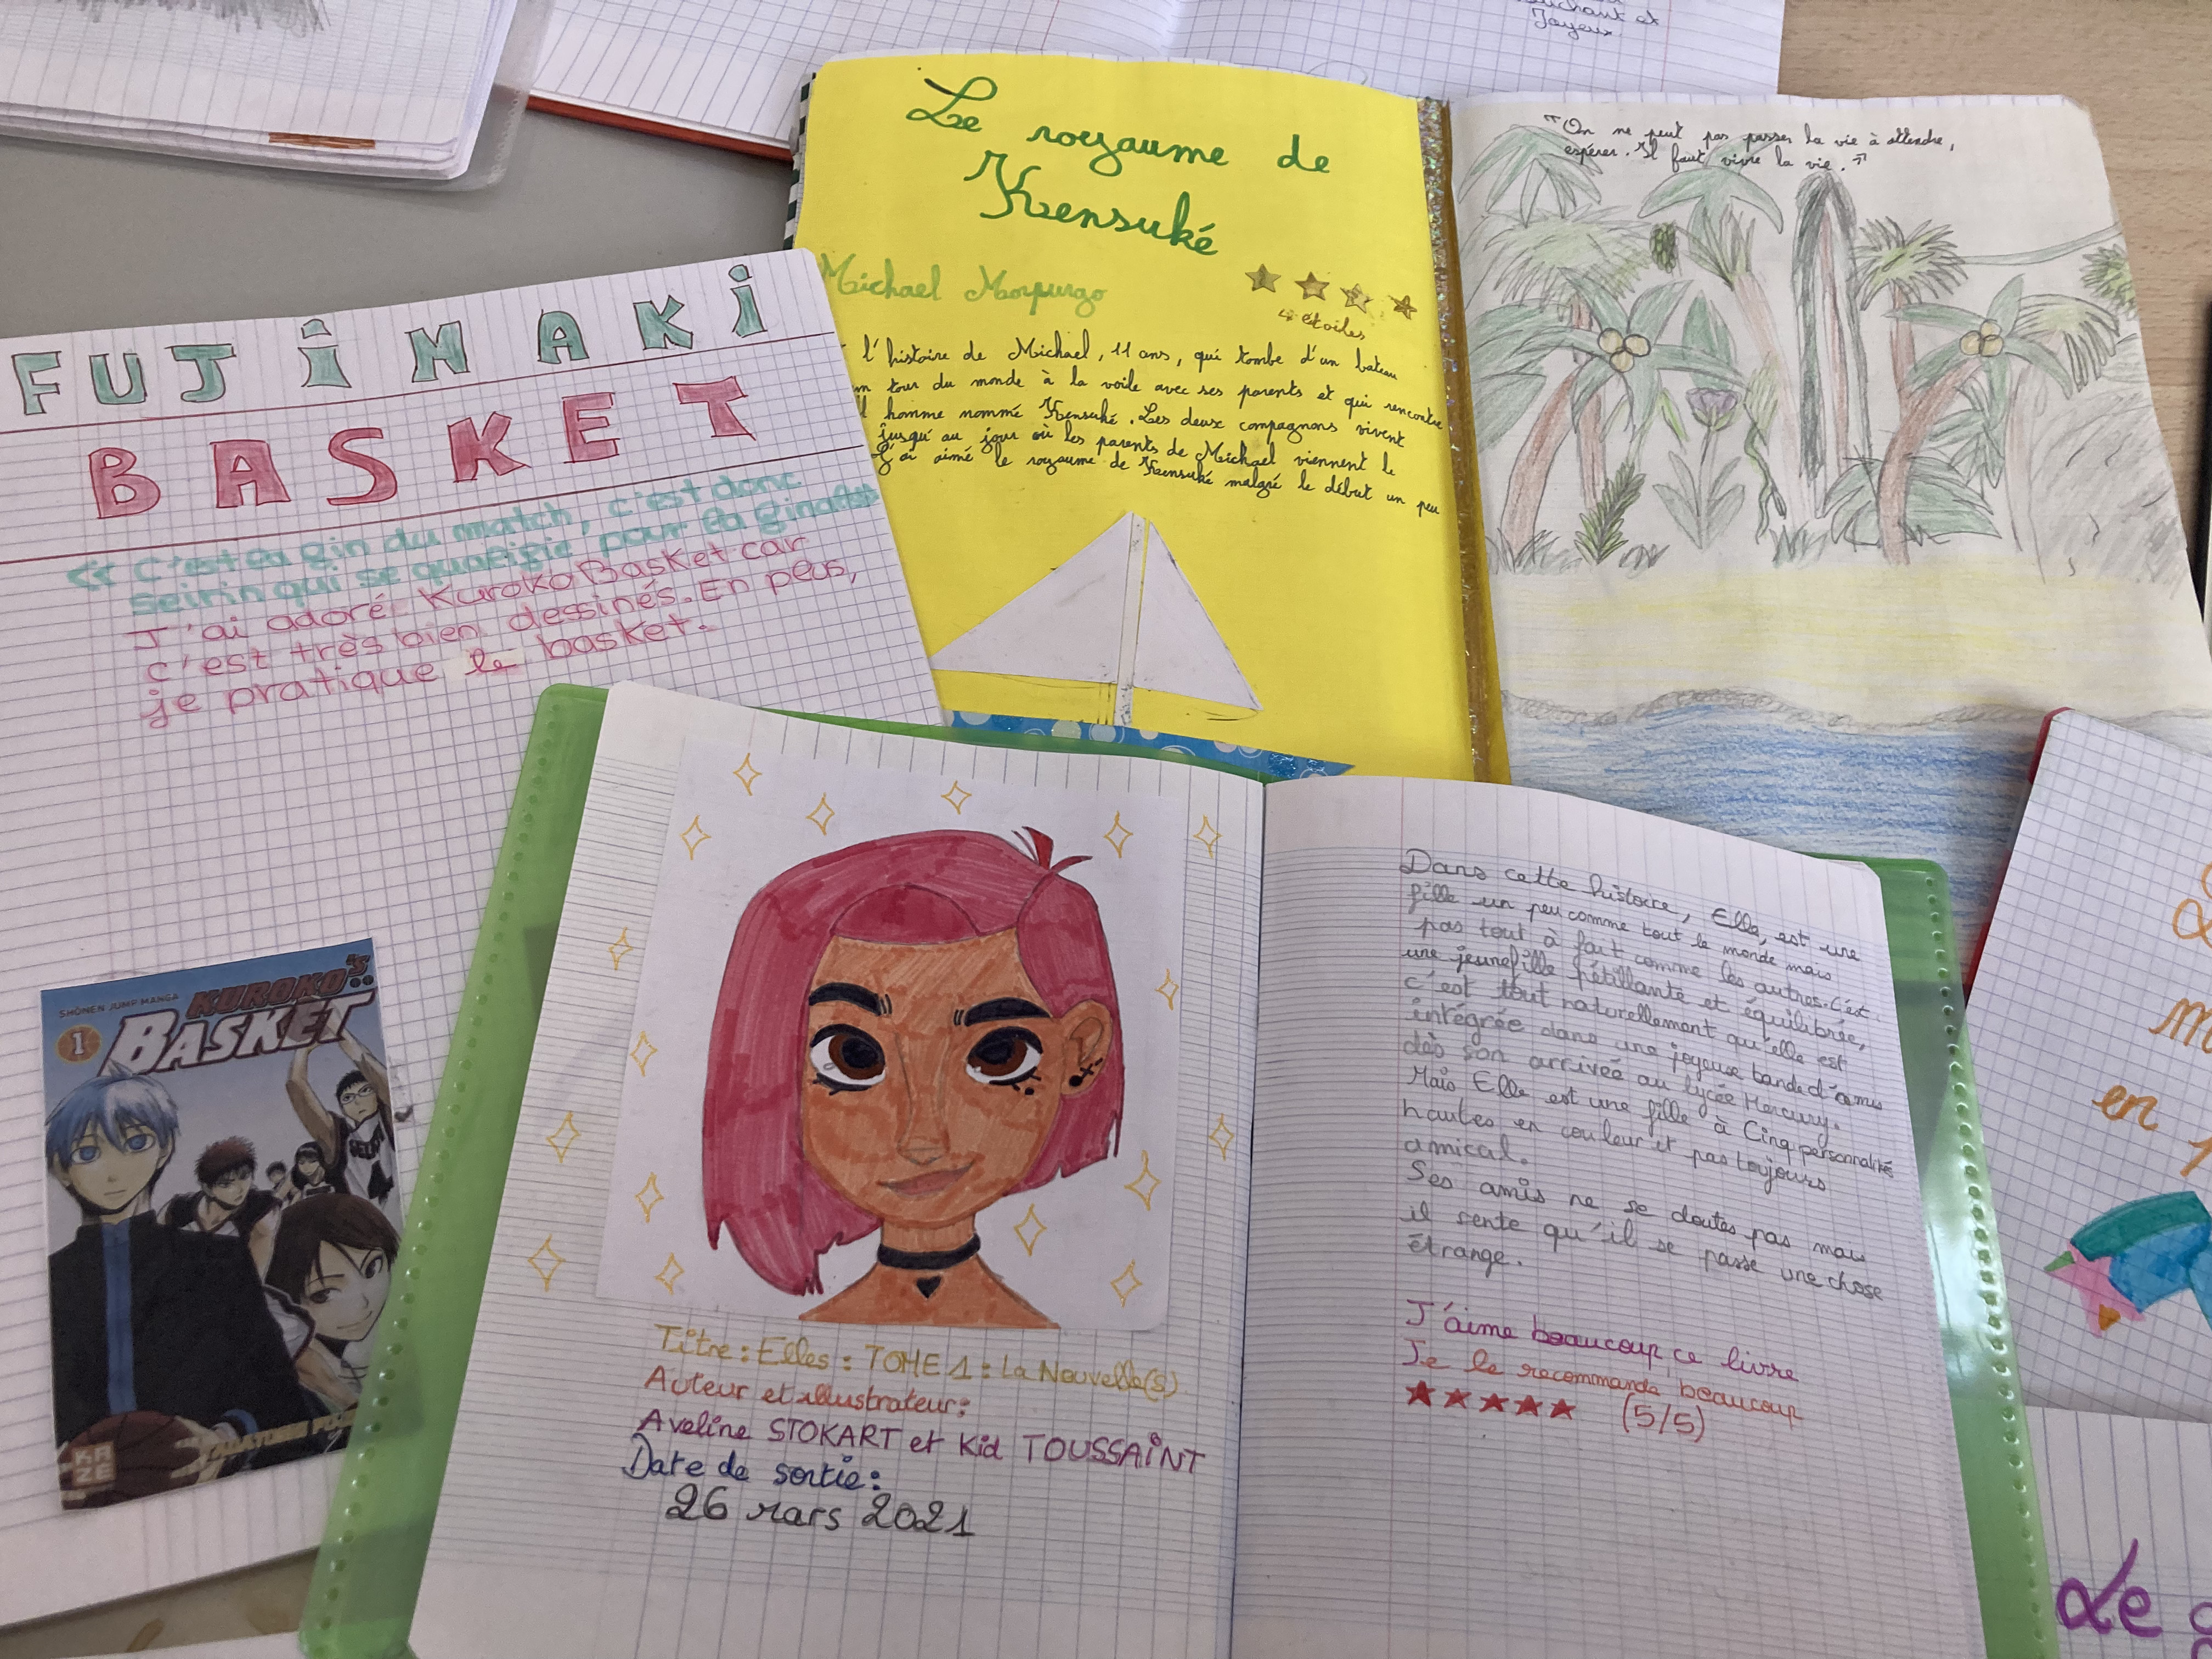 Joyeux
Le royaume de
Kensuké
Michael Morpurgo
4 étoiles
l'histoire de Michael, 11 ans, qui tombe d'un bateau
tour du monde à la voile avec ses parents et qui rencontre
homme nommé Kensuké. Les deux compagnons vivent
jusqu'au jour où les parents de Michael viennent le
J'ai aimé le royaume de Kensuké malgré le début un peu
"On ne peut pas passer la vie à attendre,
espérer. Il faut vivre la vie."
FUJIMAKI
BASKET
« C'est la fin du match, c'est donc
Seirin qui se qualifie pour la finale »
J'ai adoré Kuroko Basket car
c'est très bien dessinés. En plus,
je pratique le basket.
SHONEN JUMP MANGA
KUROKO'S
BASKET
1
KAZE
Titre : Elles : TOME 1 : La Nouvelle(s)
Auteur et illustrateur :
Aveline STOKART et Kid TOUSSAINT
Date de sortie :
26 mars 2021
Dans cette histoire, Elle, est une
fille un peu comme tout le monde mais
pas tout à fait comme les autres. C'est
une jeune fille pétillante et équilibrée,
c'est tout naturellement qu'elle est
intégrée dans une joyeuse bande d'amis
dès son arrivée au lycée Mercury.
Mais Elle est une fille à Cinq personnalités
hautes en couleur et pas toujours
amical.
Ses amis ne se doutes pas mais
il sente qu'il se passe une chose
étrange.
J'aime beaucoup ce livre
Je le recommande beaucoup
★★★★★ (5/5)
en 1
Le